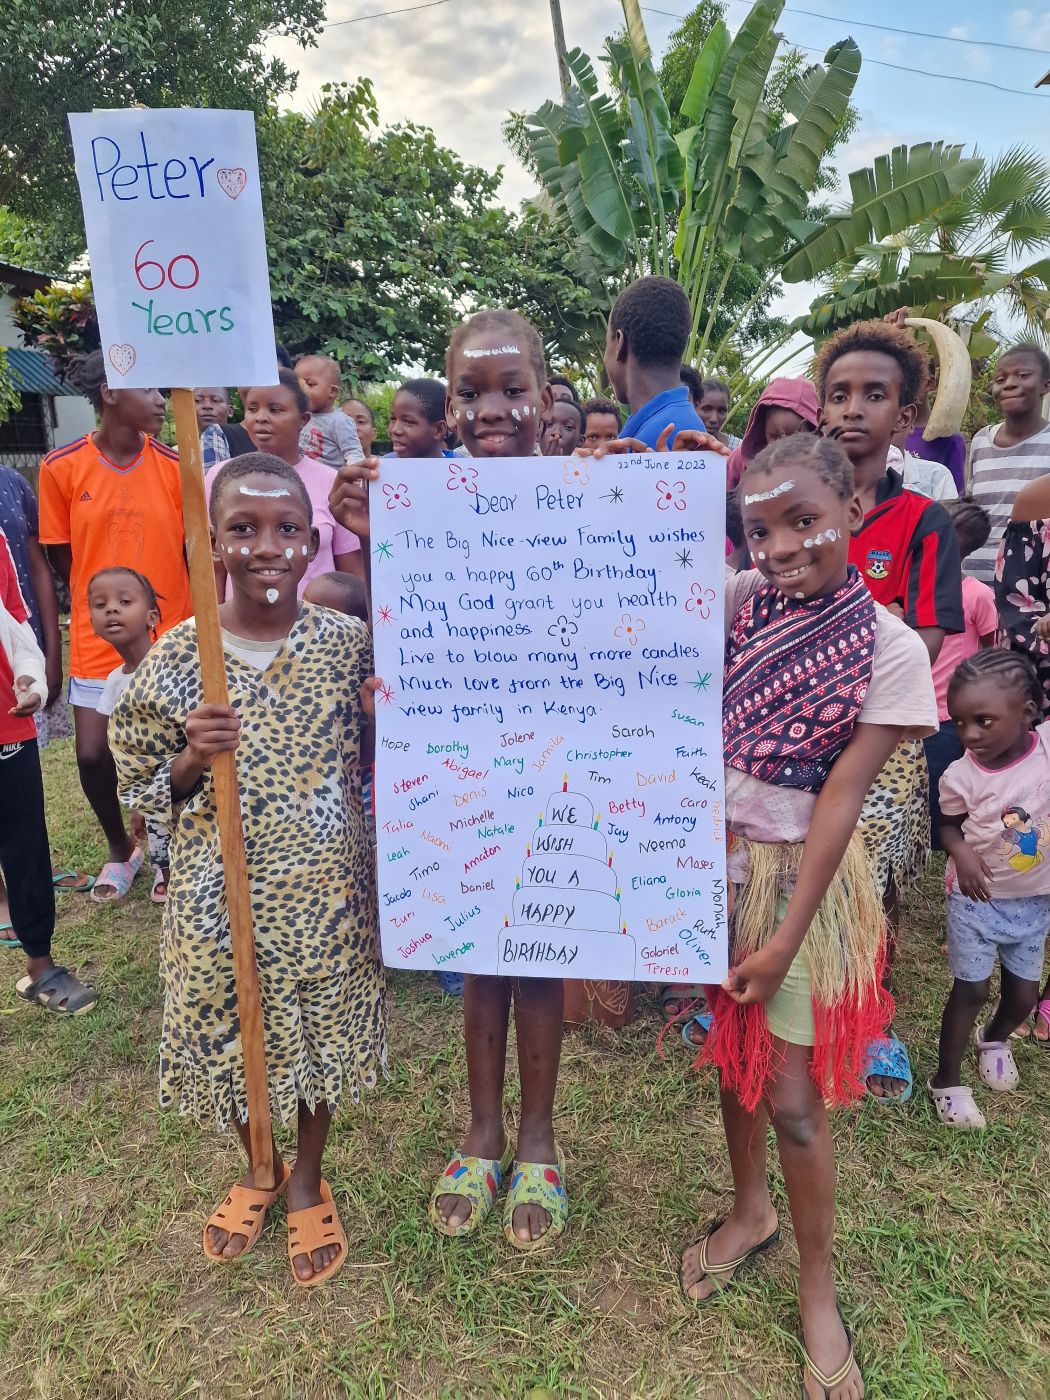 Peter
60
Years
22nd June 2023
Dear Peter
The Big Nice-view Family wishes
you a happy 60th Birthday.
May God grant you health
and happiness.
Live to blow many more candles
Much love from the Big Nice
view family in Kenya.
Hope
Dorothy
Jolene
Sarah
Susan
Steven
Abigael
Mary
Jamila
Christopher
Faith
Shani
Denis
Nico
Tim
David
Keah
Talia
Naomi
Michelle
Natalie
Betty
Caro
Fredrick
Leah
Timo
Amaton
Jay
Antony
Neema
Moses
Jacob
Lisa
Daniel
Eliana
Gloria
Moriah
Zuri
Julius
Barack
Ruth
Oliver
Joshua
Lavender
Gabriel
Teresia
WE
WISH
YOU A
HAPPY
BIRTHDAY
adidas
NIKE